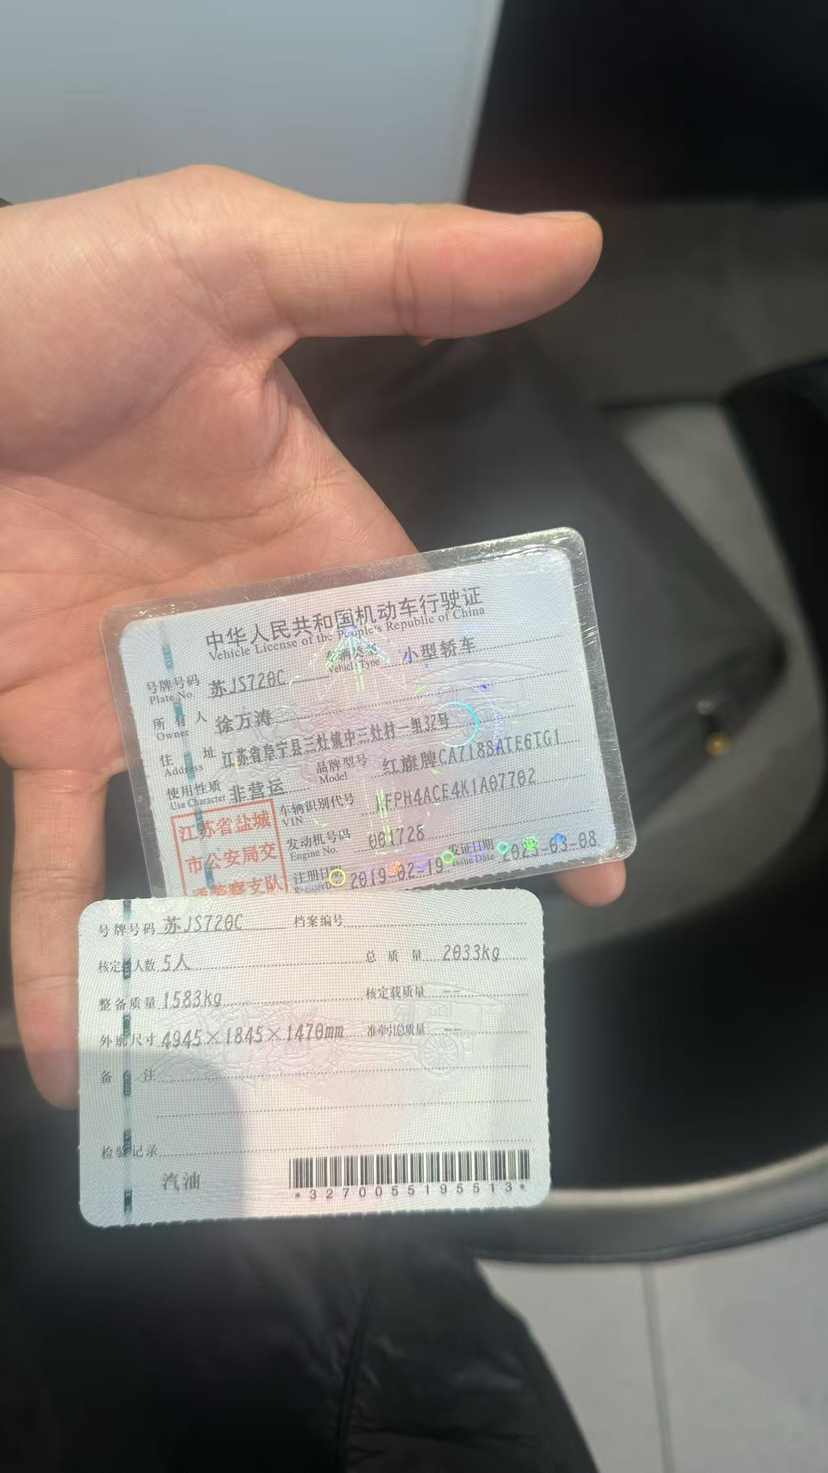 中华人民共和国机动车行驶证
Vehicle License of the People's Republic of China
号牌号码 苏JS720C 车辆类型 小型轿车
Plate No. Vehicle Type
所有人 徐万涛
Owner
住址 江苏省阜宁县三灶镇中三灶村一组32号
Address
使用性质 非营运 品牌型号 红旗牌CA7188ATE6TG1
Use Character Model
江苏省盐城 车辆识别代号 LFPH4ACE4K1A07702
VIN
市公安局交 发动机号码 001728
Engine No.
通警察支队 注册日期 2019-02-19 发证日期 2023-03-08
Issue Date
号牌号码 苏JS720C 档案编号
核定载人数 5人 总质量 2033kg
整备质量 1583kg 核定载质量 --
外廓尺寸 4945×1845×1470mm 准牵引总质量 --
备注
检验记录
汽油
*3270055195513*